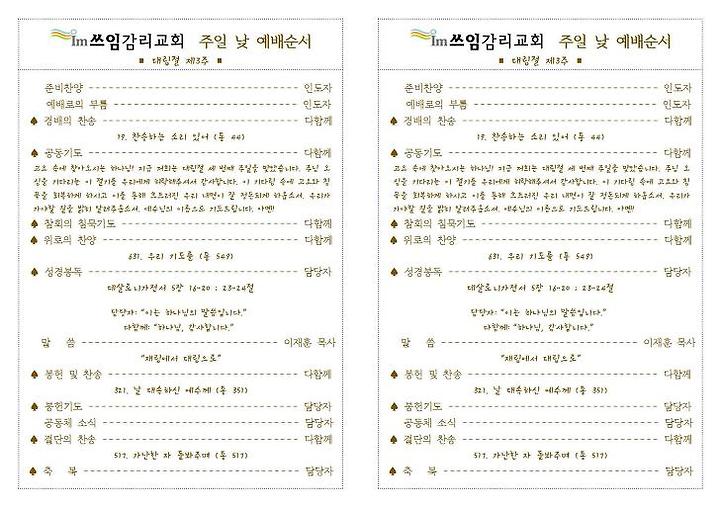 Im쓰임감리교회 주일 낮 예배순서
■ 대림절 제3주 ■
준비찬양 인도자
예배로의 부름 인도자
♠ 경배의 찬송 다함께
19. 찬송하는 소리 있어 (통 44)
♠ 공동기도 다함께
고요 속에 찾아오시는 하나님! 지금 저희는 대림절 세 번째 주일을 맞았습니다. 주님 오
심을 기다리는 이 절기를 우리에게 허락해주셔서 감사합니다. 이 기다림 속에 고요와 침
묵을 회복하게 하시고 이를 통해 흐트러진 우리 내면이 잘 정돈되게 하옵소서. 우리가
가야할 길을 밝히 알려주옵소서. 예수님의 이름으로 기도드립니다. 아멘!
♠ 참회의 침묵기도 다함께
♠ 위로의 찬양 다함께
631. 우리 기도를 (통 549)
♠ 성경봉독 담당자
데살로니가전서 5장 16-20 ; 23-24절
담당자: "이는 하나님의 말씀입니다."
다함께: "하나님, 감사합니다."
말 씀 이재훈 목사
"재림에서 대림으로"
♠ 봉헌 및 찬송 다함께
321. 날 대속하신 예수께 (통 351)
♠ 봉헌기도 담당자
공동체 소식 담당자
♠ 결단의 찬송 다함께
517. 가난한 자 돌봐주며 (통 517)
♠ 축 복 담당자
Im쓰임감리교회 주일 낮 예배순서
■ 대림절 제3주 ■
준비찬양 인도자
예배로의 부름 인도자
♠ 경배의 찬송 다함께
19. 찬송하는 소리 있어 (통 44)
♠ 공동기도 다함께
고요 속에 찾아오시는 하나님! 지금 저희는 대림절 세 번째 주일을 맞았습니다. 주님 오
심을 기다리는 이 절기를 우리에게 허락해주셔서 감사합니다. 이 기다림 속에 고요와 침
묵을 회복하게 하시고 이를 통해 흐트러진 우리 내면이 잘 정돈되게 하옵소서. 우리가
가야할 길을 밝히 알려주옵소서. 예수님의 이름으로 기도드립니다. 아멘!
♠ 참회의 침묵기도 다함께
♠ 위로의 찬양 다함께
631. 우리 기도를 (통 549)
♠ 성경봉독 담당자
데살로니가전서 5장 16-20 ; 23-24절
담당자: "이는 하나님의 말씀입니다."
다함께: "하나님, 감사합니다."
말 씀 이재훈 목사
"재림에서 대림으로"
♠ 봉헌 및 찬송 다함께
321. 날 대속하신 예수께 (통 351)
♠ 봉헌기도 담당자
공동체 소식 담당자
♠ 결단의 찬송 다함께
517. 가난한 자 돌봐주며 (통 517)
♠ 축 복 담당자